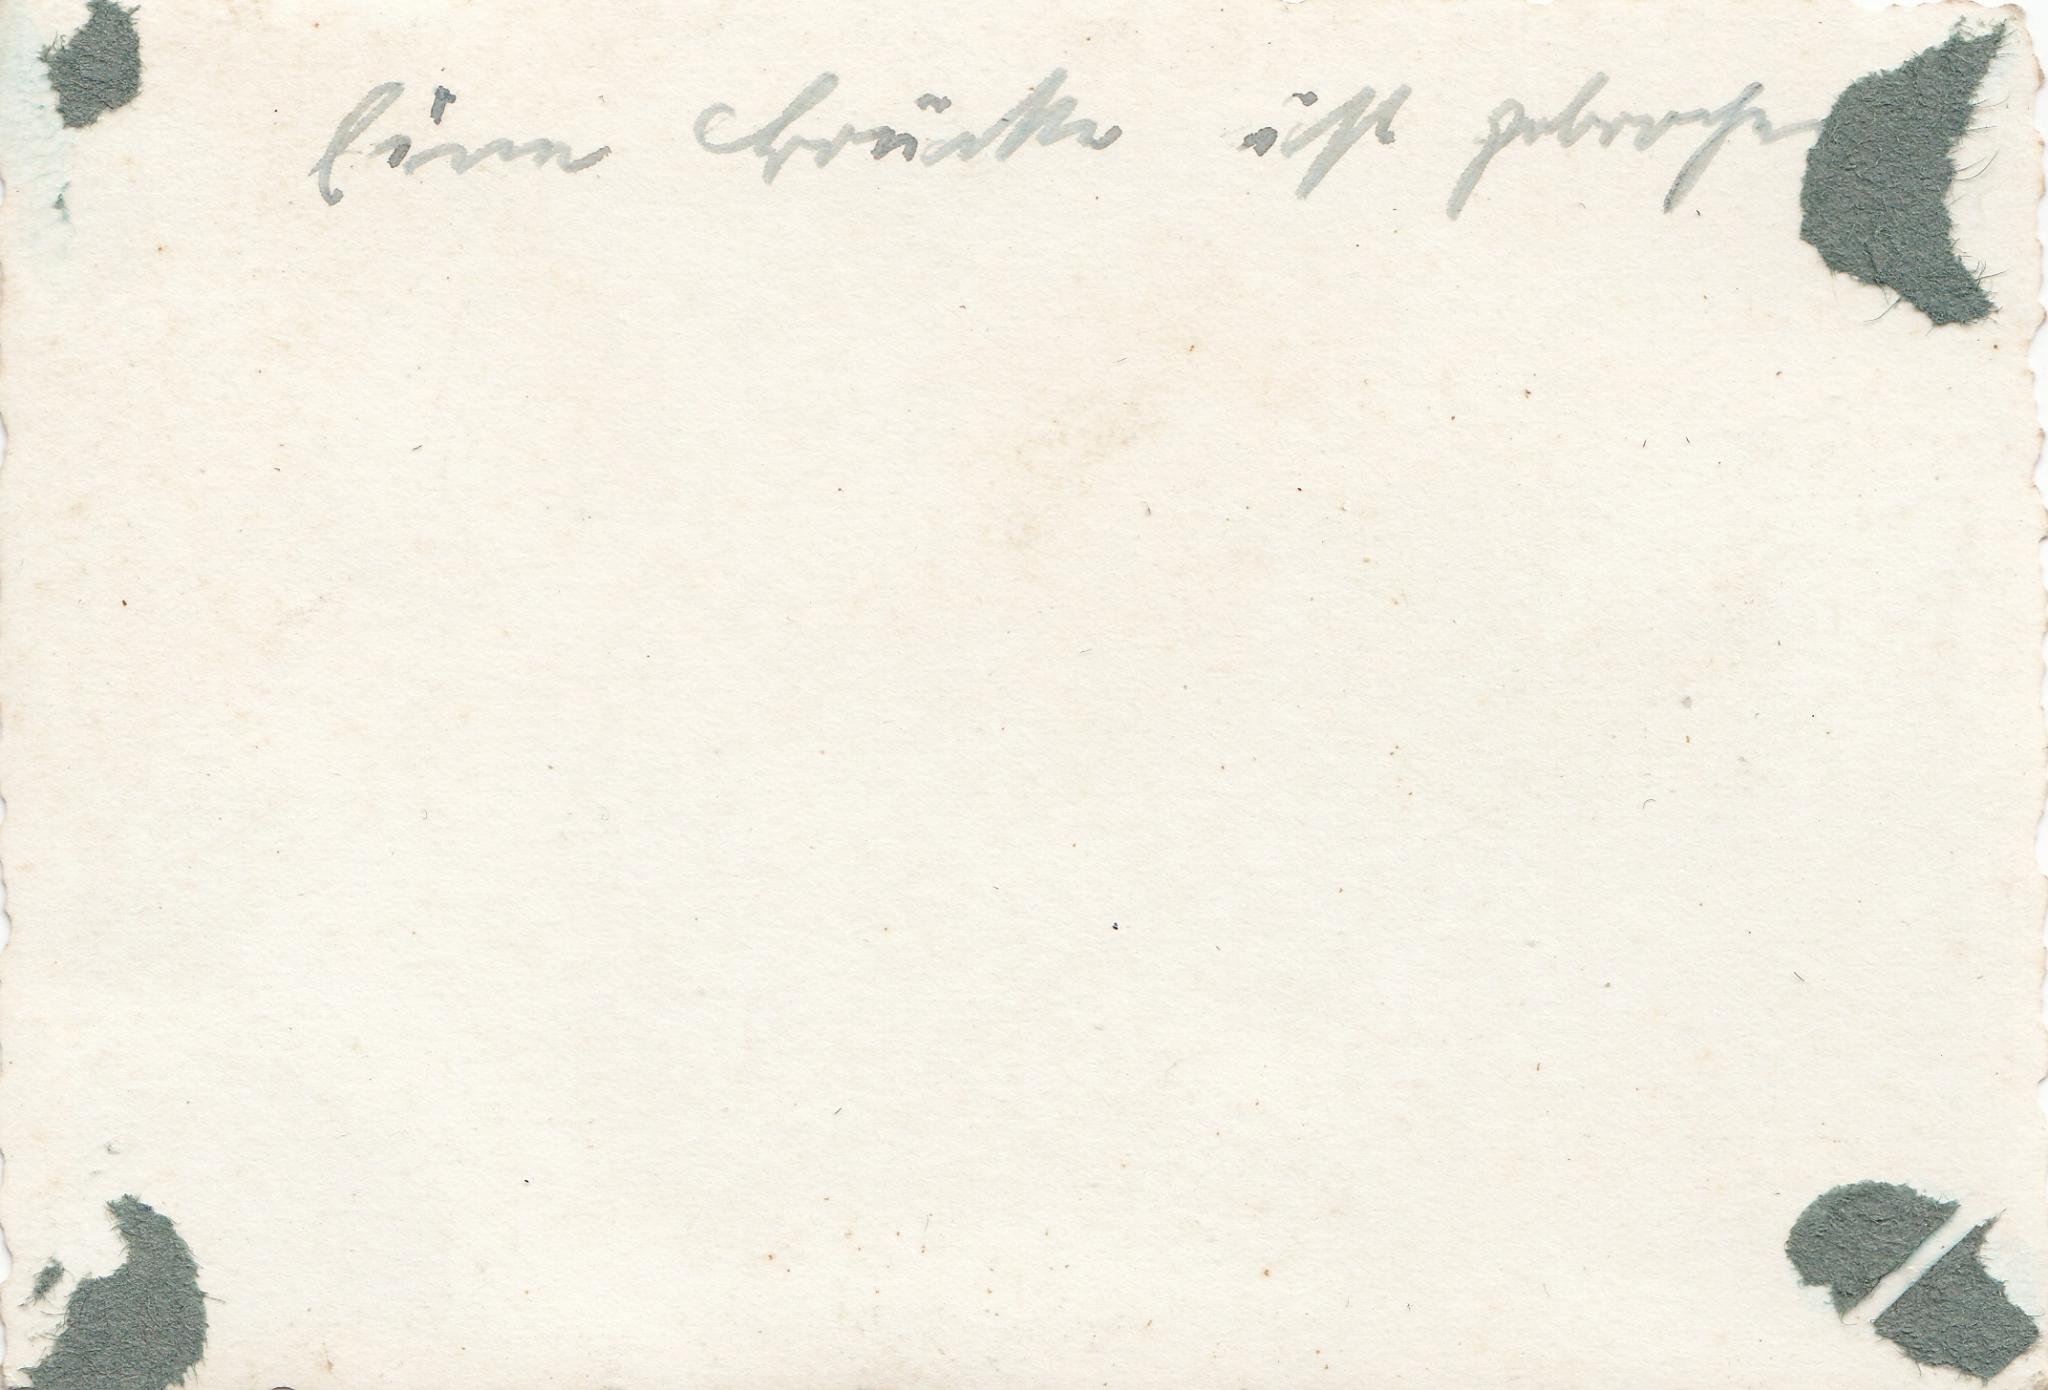 Eine Brücke ist gebrochen